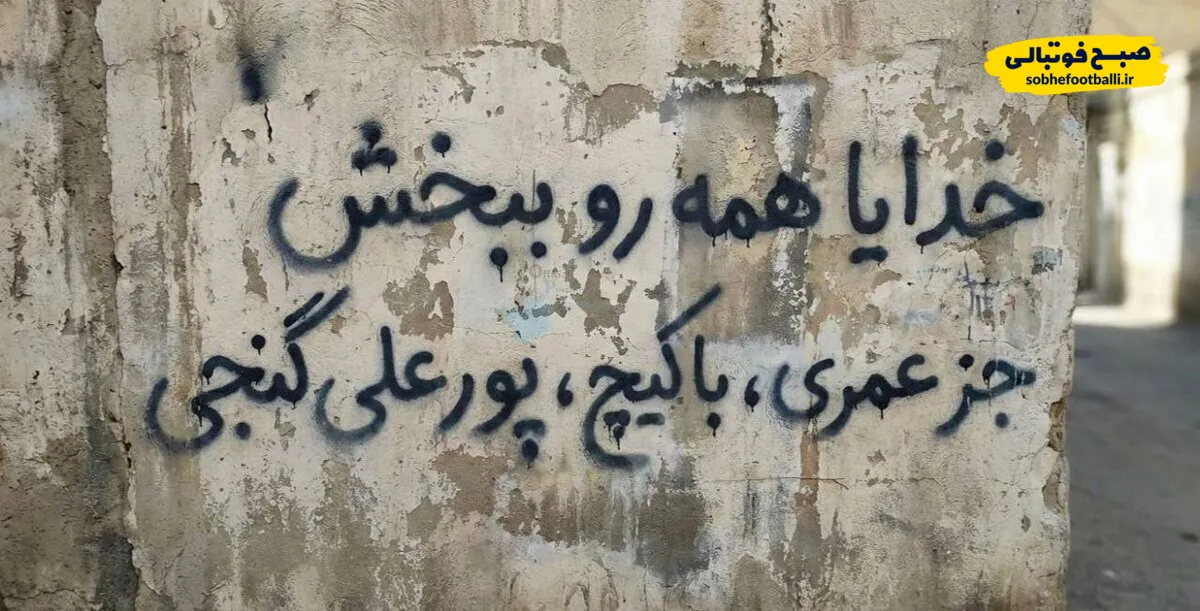 صبح فوتبالی
sobhefootballi.ir
خدایا همه رو ببخش
جز عمری، باکیچ، پورعلی گنجی